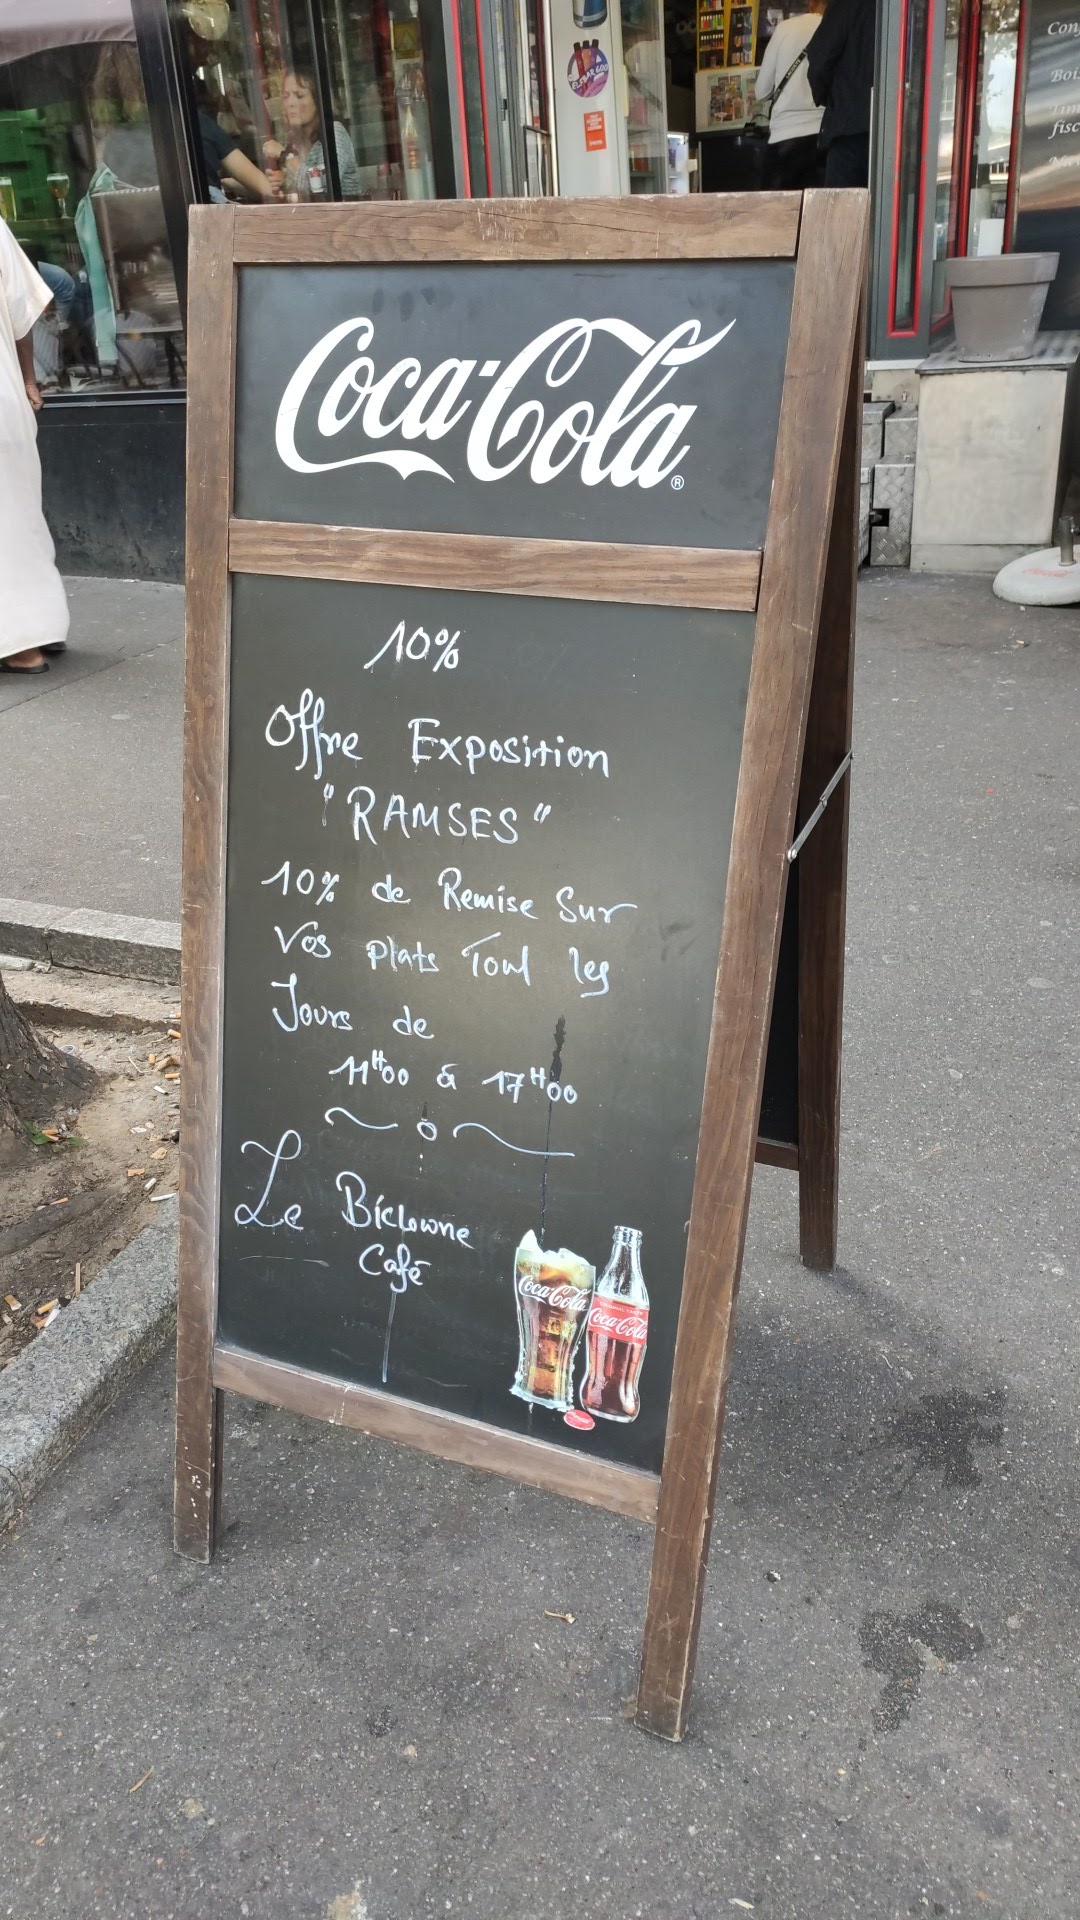 ELFBAR 600
Coca-Cola®
10%
Offre Exposition
"RAMSES"
10% de Remise Sur
Vos plats Tout les
Jours de
11H00 à 17H00
Le Biclowne
Café
Coca-Cola
Coca-Cola